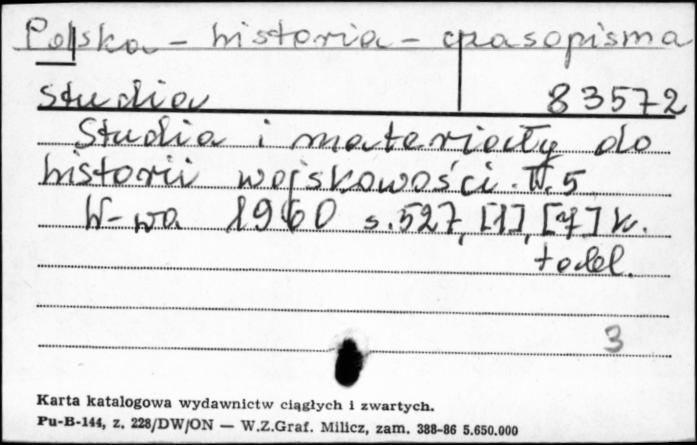 Polska - historia - czasopisma
Studia 83572
Studia i materiały do
historii wojskowości. T. 5
W-wa 1960 s. 527, [1], [7] k.
tabl.
3
Karta katalogowa wydawnictw ciągłych i zwartych.
Pu-B-144, z. 228/DW/ON — W.Z.Graf. Milicz, zam. 388-86 5.650.000